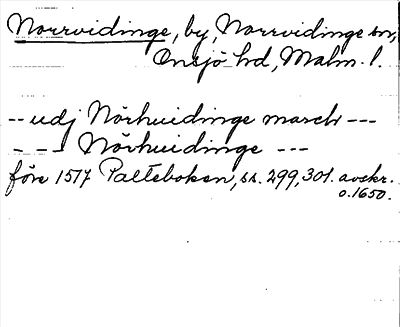 Norrvidinge, by, Norrvidinge sn,
Onsjö hd, Malm. l.
-- udj Nörhuidinge march ---
- - - Nörhuidinge ---
före 1517 Palteboken, ss. 299, 301. avskr.
o. 1650.